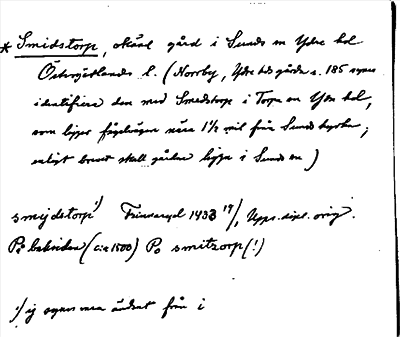 * Smidstorp, okänt gård i Sunds sn Ydre hd
Östergötlands l. (Norrby, Ydre hds gårdar s. 185 synes
identifiera den med Smedstorp i Torpa sn Ydre hd,
som ligger fågelvägen nära 1½ mil från Sunds kyrka;
enligt brevet skall gården ligga i Sunds sn)
smijdstorp¹⁾ 1433 17/, Upps. dipl. orig.
På baksidan (c:a 1500) Po smitzorp (!)
¹⁾ ij synes vara ändrat från i